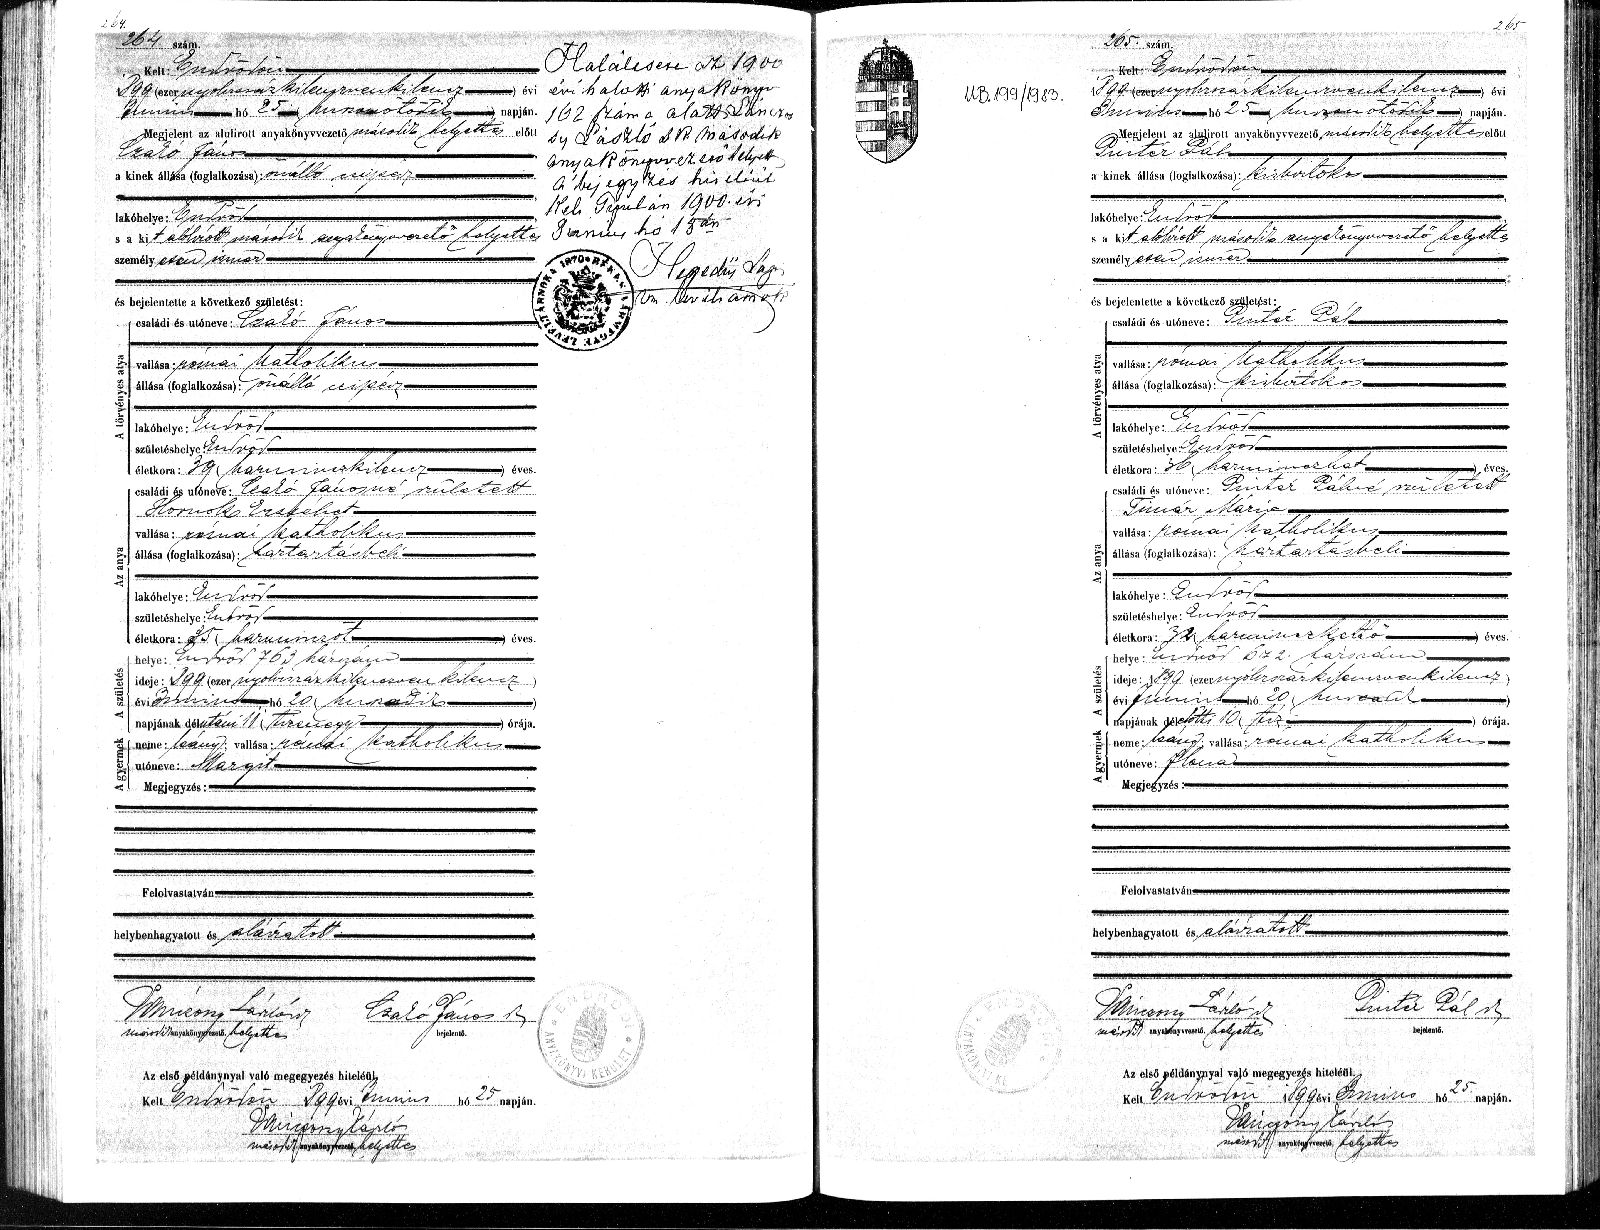 264.
264 szám.
Kelt: Endrődön
1899 (ezernyolcszázkilencvenkilencz) évi
Junius hó 25 (huszonötödik) napján.
Megjelent az alulirott anyakönyvvezető, második helyettes előtt
Szabó János
a kinek állása (foglalkozása): önálló
lakóhelye: Endrőd
s a kit alulírott második anyakönyvvezető helyettes
személyesen ismer
és bejelentette a következő születést:
A törvényes atya
családi és utóneve: Szabó János
vallása: római katholikus
állása (foglalkozása): önálló
lakóhelye: Endrőd
születéshelye: Endrőd
életkora: 39 (harminczkilencz) éves.
Az anya
családi és utóneve: Szabó Jánosné született
Hornok Erzsébet
vallása: római katholikus
állása (foglalkozása): háztartásbeli
lakóhelye: Endrőd
születéshelye: Endrőd
életkora: 35 (harminczöt) éves.
A születés
helye: Endrőd 763 házszám
ideje: 1899 (ezernyolcszázkilenczvenkilencz)
évi Junius hó 20 (huszadik)
napjának délutáni 11 (tizenegy) órája.
A gyermek
neme: leány; vallása: római katholikus
utóneve: Margit
Megjegyzés:
Felolvastatván
helybenhagyatott és aláíratott
László
második anyakönyvvezető helyettes
Szabó János
bejelentő.
Az első példánynyal való megegyezés hiteléül.
Kelt Endrődön 1899 évi Junius hó 25 napján.
László
második anyakönyvvezető helyettes
Halálesete az 1900
évi halotti anyakönyv
162 száma alatt
László s.k. második
anyakönyvvezető helyett.
A bejegyzés hiteléül
Kelt Gyulán 1900. évi
Junius hó 15én
Hegedűs
ENDRŐDI
ANYAKÖNYVI KERÜLET
265
265. szám.
Kelt: Endrődön
1899 (ezernyolcszázkilenczvenkilencz) évi
Junius hó 25 (huszonötödik) napján.
Megjelent az alulirott anyakönyvvezető, második helyettes előtt
Pintér Pál
a kinek állása (foglalkozása): kisbirtokos
lakóhelye: Endrőd
s a kit alulírott második anyakönyvvezető helyettes
személyesen ismer
és bejelentette a következő születést:
A törvényes atya
családi és utóneve: Pintér Pál
vallása: római katholikus
állása (foglalkozása): kisbirtokos
lakóhelye: Endrőd
születéshelye: Endrőd
életkora: 36 (harminczhat) éves.
Az anya
családi és utóneve: Pintér Pálné született
Timár Mária
vallása: római katholikus
állása (foglalkozása): háztartásbeli
lakóhelye: Endrőd
születéshelye: Endrőd
életkora: 32 (harminczkettő) éves.
A születés
helye: Endrőd 672 házszám
ideje: 1899 (ezernyolcszázkilenczvenkilencz)
évi Junius hó 20 (huszadik)
napjának délelőtti 10 (tíz) órája.
A gyermek
neme: leány; vallása: római katholikus
utóneve: Ilona
Megjegyzés:
Felolvastatván
helybenhagyatott és aláíratott
László
második anyakönyvvezető helyettes
Pintér Pál
bejelentő.
Az első példánynyal való megegyezés hiteléül.
Kelt Endrődön 1899 évi Junius hó 25 napján.
László
második anyakönyvvezető helyettes
UB. 199/1983.